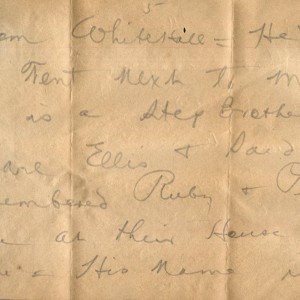 5
Whitehall = He
Tent Next To M
is a Step Brothe
Ellis & Said
membered Ruby &
at their House
His Name